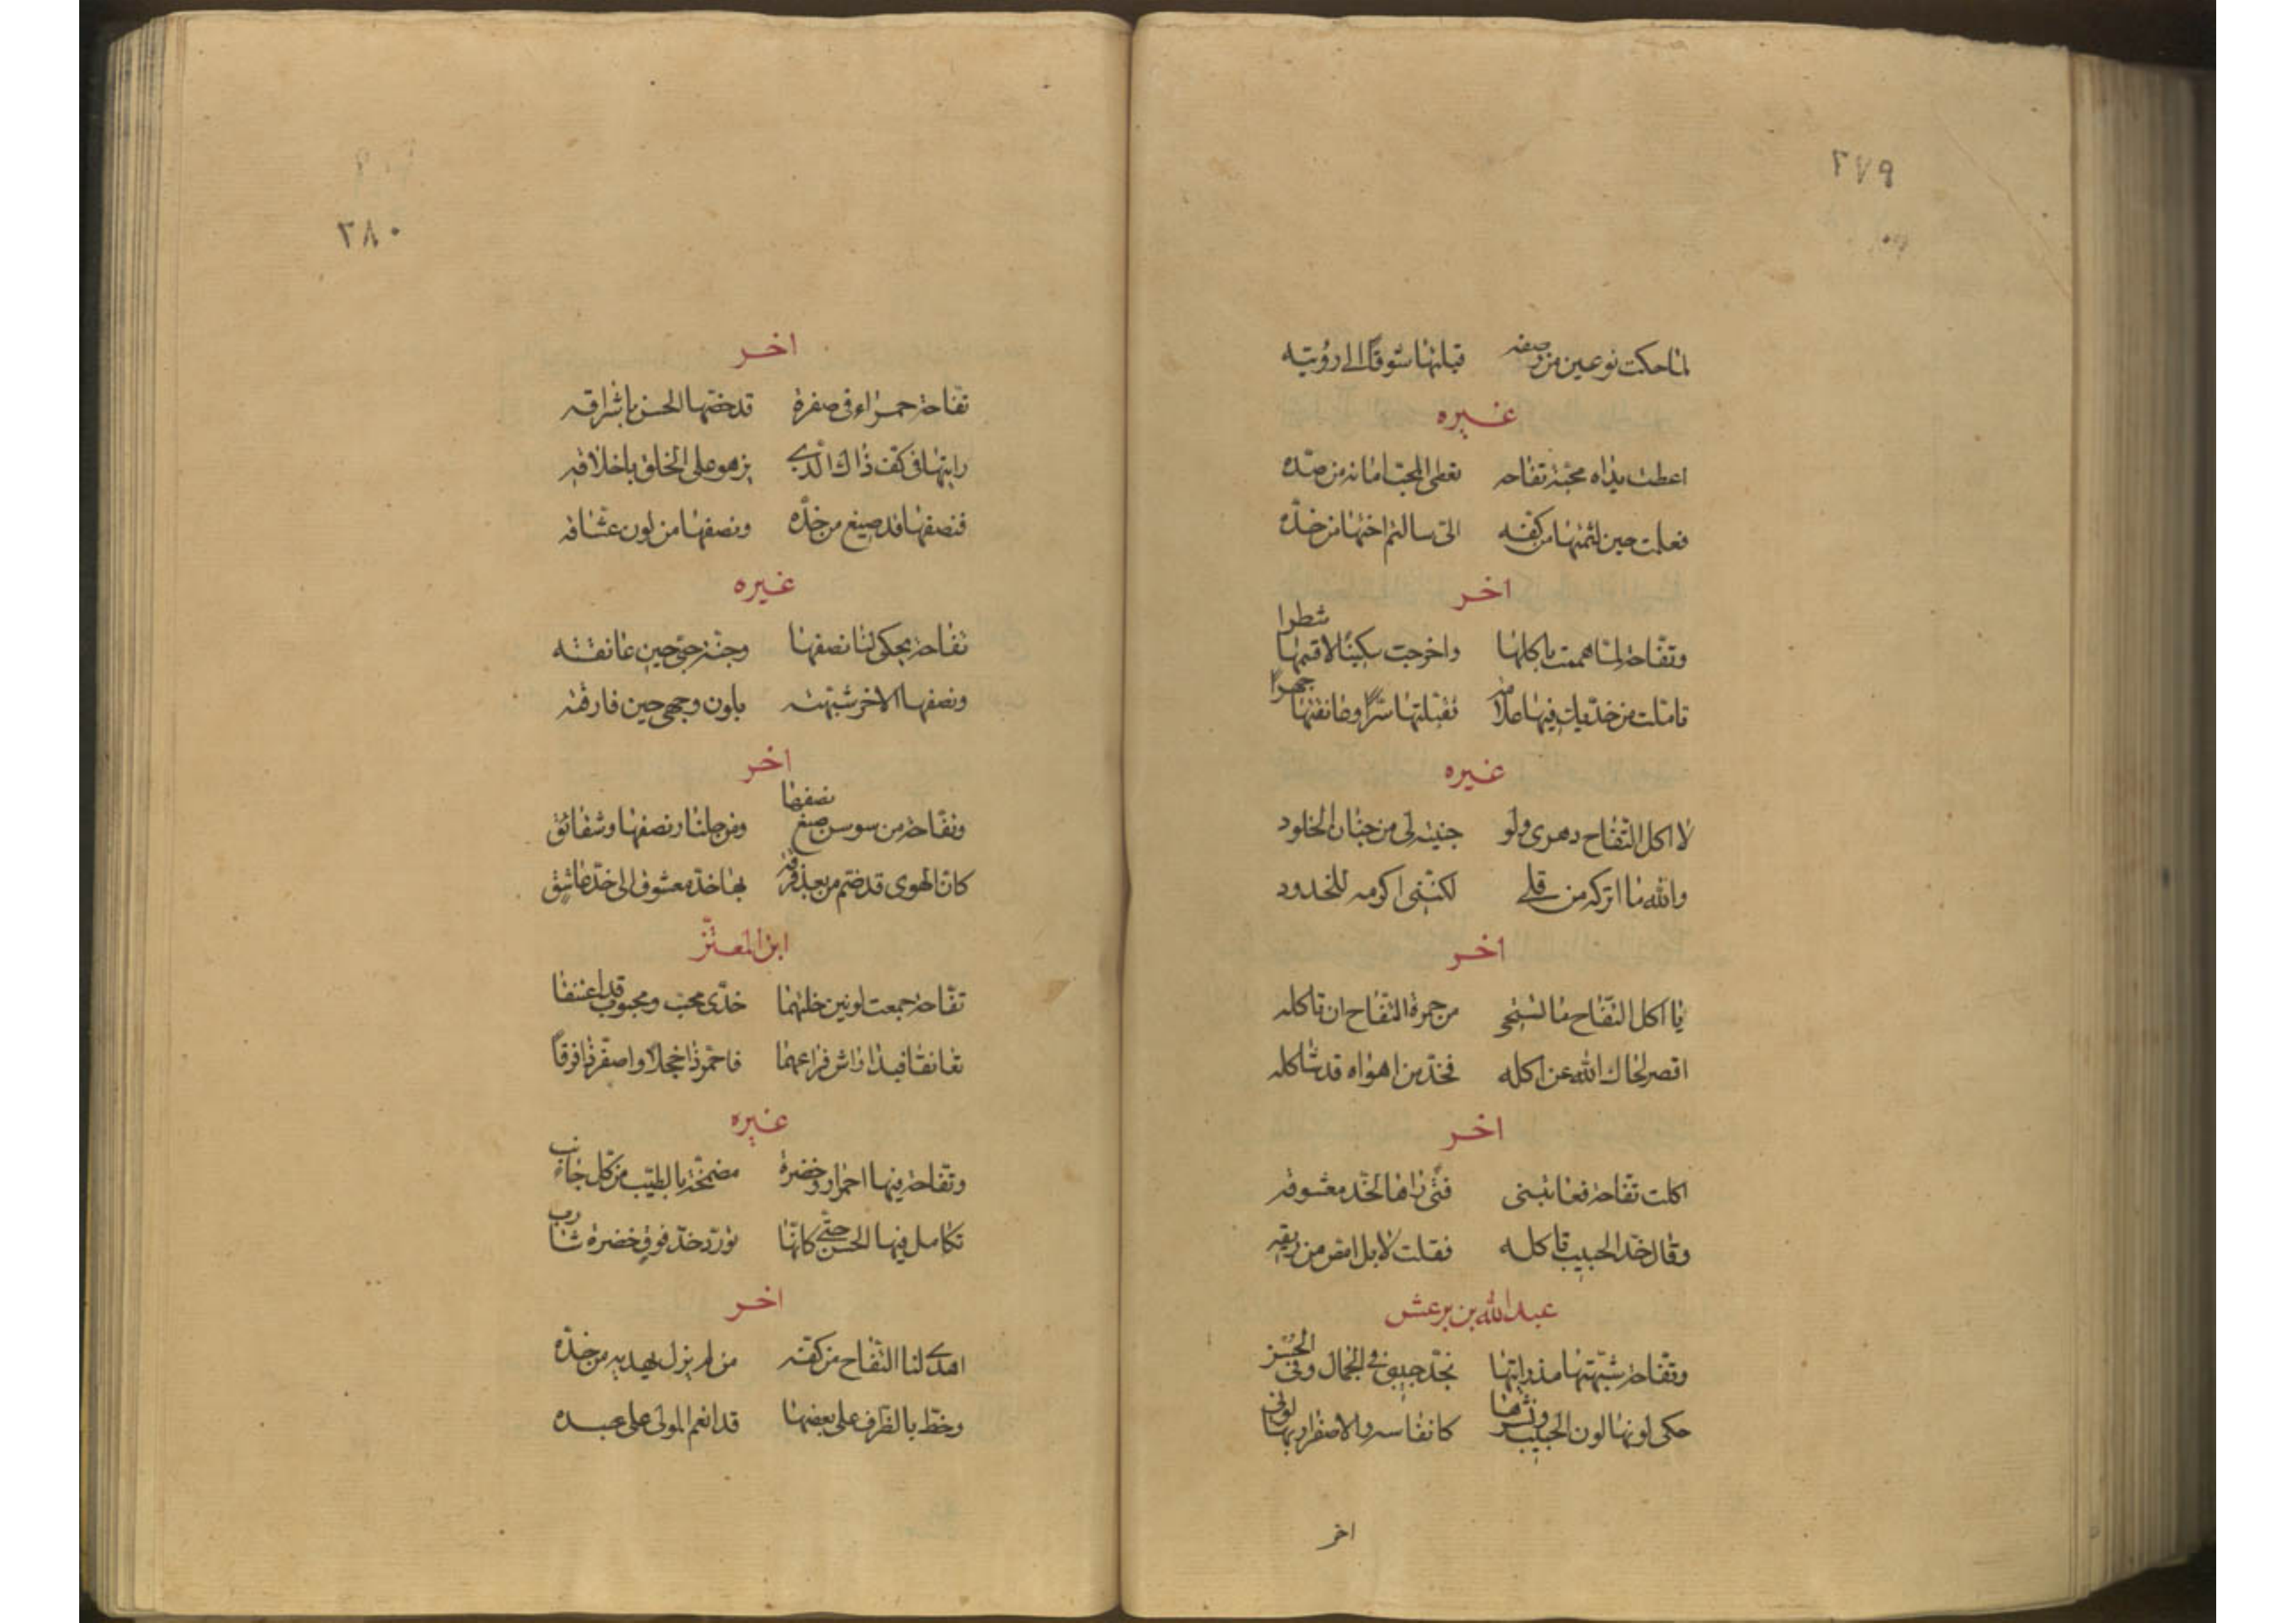 ٢٧٩
لما حكت نوعين من وصفه قبلتها شوقا الى رؤيته
غيره
اعطت يداه محبه تفاحه تعطى المحب امانه من صده
فعلمت حين لثمتها من كفه انى سالثم اختها من خده
اخر
وتفاحة لما هممت باكلها واخرجت سكينا لاقسمها شطرا
تاملت من خدّيك فيها علامة فقبلتها سرّا وعانقتها جهرًا
غيره
لا اكل التفاح دهرى ولو جنيته لى من جنان الخلود
والله ما اتركه من قلى لكننى اكرمه للخدود
اخر
يا اكل التفاح ما تستحى من حمرة التفاح ان تاكله
اقصر لحاك الله عن اكله فخد من اهواه قد شاكله
اخر
اكلت تفاحة فعاتبنى فتًى راها لخد معشوقه
وقال خد الحبيب تاكله فقلت لا بل امص من ريقه
عبد الله بن برعش
وتفاحة شبهتها مذ رايتها بخد حبيبى فى الجمال وفى الحسن
حكى لونها لون الحبيب ونشرها كانفاسه والاصفرار بها لونى
اخر
٢٨٠
اخر
تفاحة حمراء فى صفرة قد خصها الحسن باشراقه
رايتها فى كف ذاك الذى يزهو على الخلق باخلاقه
فنصفها قد صيغ من خده ونصفها من لون عشاقه
غيره
تفاحة يحكى لنا نصفها وجنة حبى حين عانقته
ونصفها الاخر شبهته بلون وجهى حين فارقته
اخر
وتفاحة من سوسن صيغ نصفها ومن جلنار نصفها وشقائق
كان الهوى قد ضم من بعد فرقة بها خد معشوق الى خد عاشق
ابن المعتز
تفاحة جمعت لونين خلتهما خدى محب ومحبوب قد اعتنقا
تعانقا فبدا واش فراعهما فاحمر ذا خجلا واصفر ذا فرقاً
غيره
وتفاحة فيها احمرار وخضرة مضمخة بالطيب من كل جانب
تكامل فيها الحسن حتى كانها تورد خد فوق خضرة شارب
اخر
اهدى لنا التفاح من كفه من لم يزل يهديه من خده
وخط بالظرف على بعضها قد انعم المولى على عبده